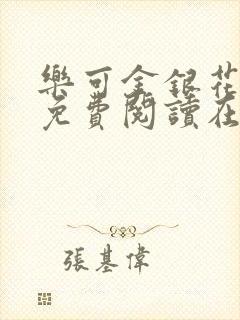 樂可金銀花
免費閱讀在
張基偉